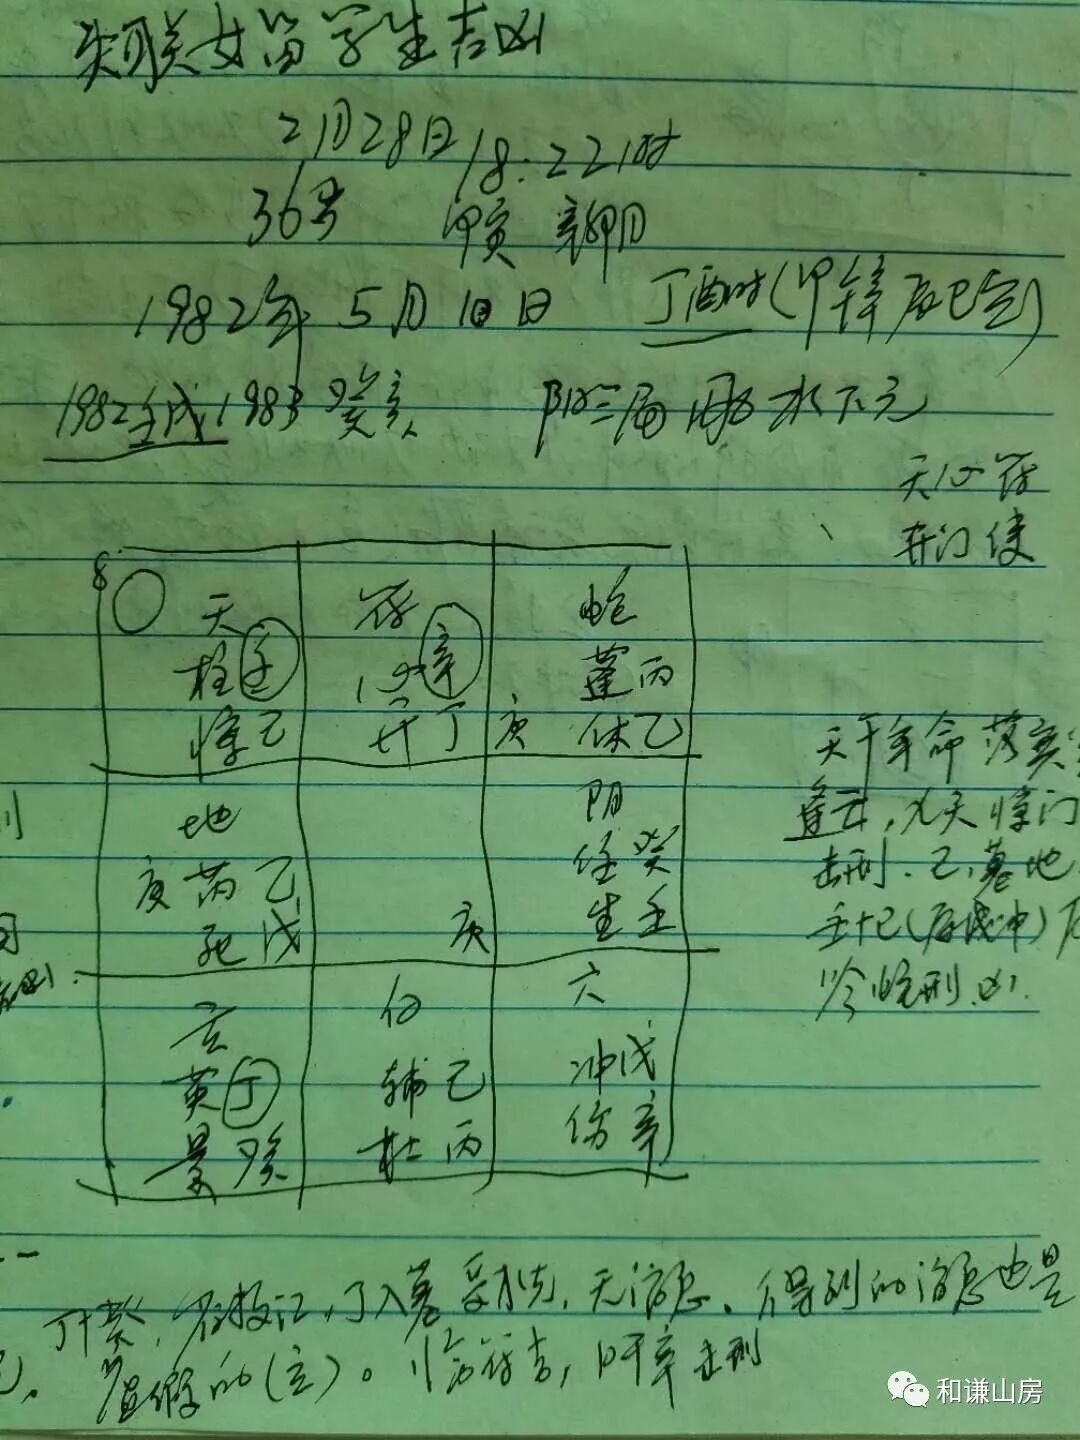 失联女留学生吉凶
2月28日 18:22时
36号 甲寅 辛卯日
1982年5月10日 丁酉时(甲午辛 辰巳空)
1982壬戌 1983癸亥 阳三局 雨水下元
天心符
开门使
8 天 符 蛇
柱 壬 心 辛 蓬 丙
惊 己 开 丁 庚 休 乙
地 阴
庚 芮 乙 任 癸
死 戊 庚 生 壬
玄 白 六
英 丁 辅 己 冲 戊
景 癸 杜 丙 伤 辛
天干年命落
逢空,九天惊门
击刑.己,墓地
壬+己(辰戌冲)
刑.凶.
则
丁+癸,雀投江,丁入墓受克,无消息.得到的消息也是
虚假的(玄)。临符吉,日干辛击刑
和谦山房